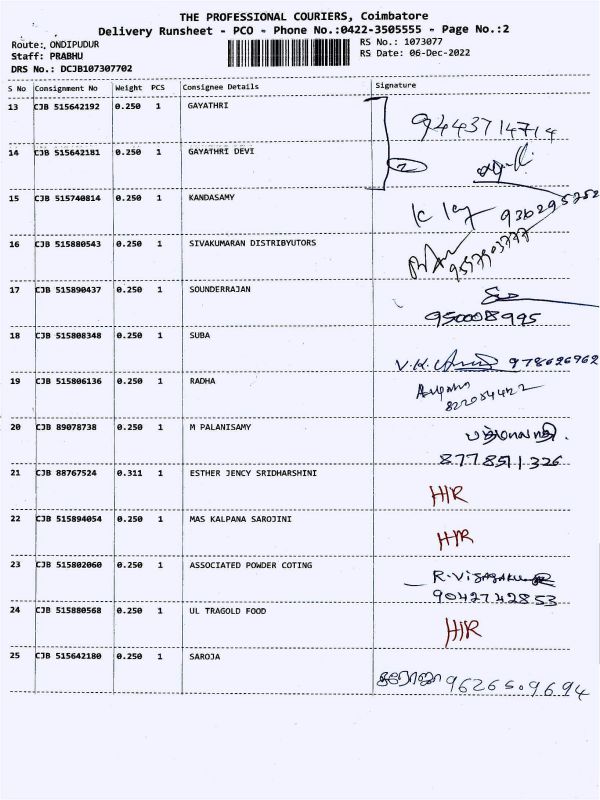 THE PROFESSIONAL COURIERS, Coimbatore
Delivery Runsheet - PCO - Phone No.:0422-3505555 - Page No.:2
Route: ONDIPUDUR
RS No.: 1073077
Staff: PRABHU
RS Date: 06-Dec-2022
DRS No.: DCJB107307702
S No Consignment No Weight PCS Consignee Details Signature
13 CJB 515642192 0.250 1 GAYATHRI 9443714714
14 CJB 515642181 0.250 1 GAYATHRI DEVI 2
15 CJB 515740814 0.250 1 KANDASAMY
16 CJB 515880543 0.250 1 SIVAKUMARAN DISTRIBYUTORS
17 CJB 515890437 0.250 1 SOUNDERRAJAN
950008995
18 CJB 515808348 0.250 1 SUBA V.K.
19 CJB 515806136 0.250 1 RADHA
20 CJB 89078738 0.250 1 M PALANISAMY
8778511326
21 CJB 88767524 0.311 1 ESTHER JENCY SRIDHARSHINI H/R
22 CJB 515894054 0.250 1 MAS KALPANA SAROJINI H/R
23 CJB 515802060 0.250 1 ASSOCIATED POWDER COTING
9042742853
24 CJB 515880568 0.250 1 UL TRAGOLD FOOD H/R
25 CJB 515642180 0.250 1 SAROJA சரோஜா 9626509694